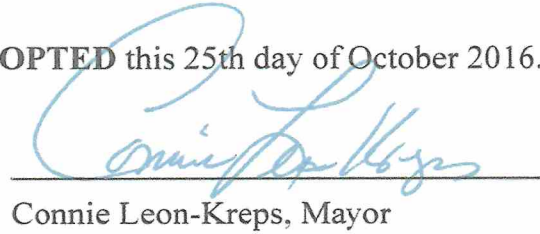 OPTED this 25th day of October 2016.
Connie Leon-Kreps
Connie Leon-Kreps, Mayor